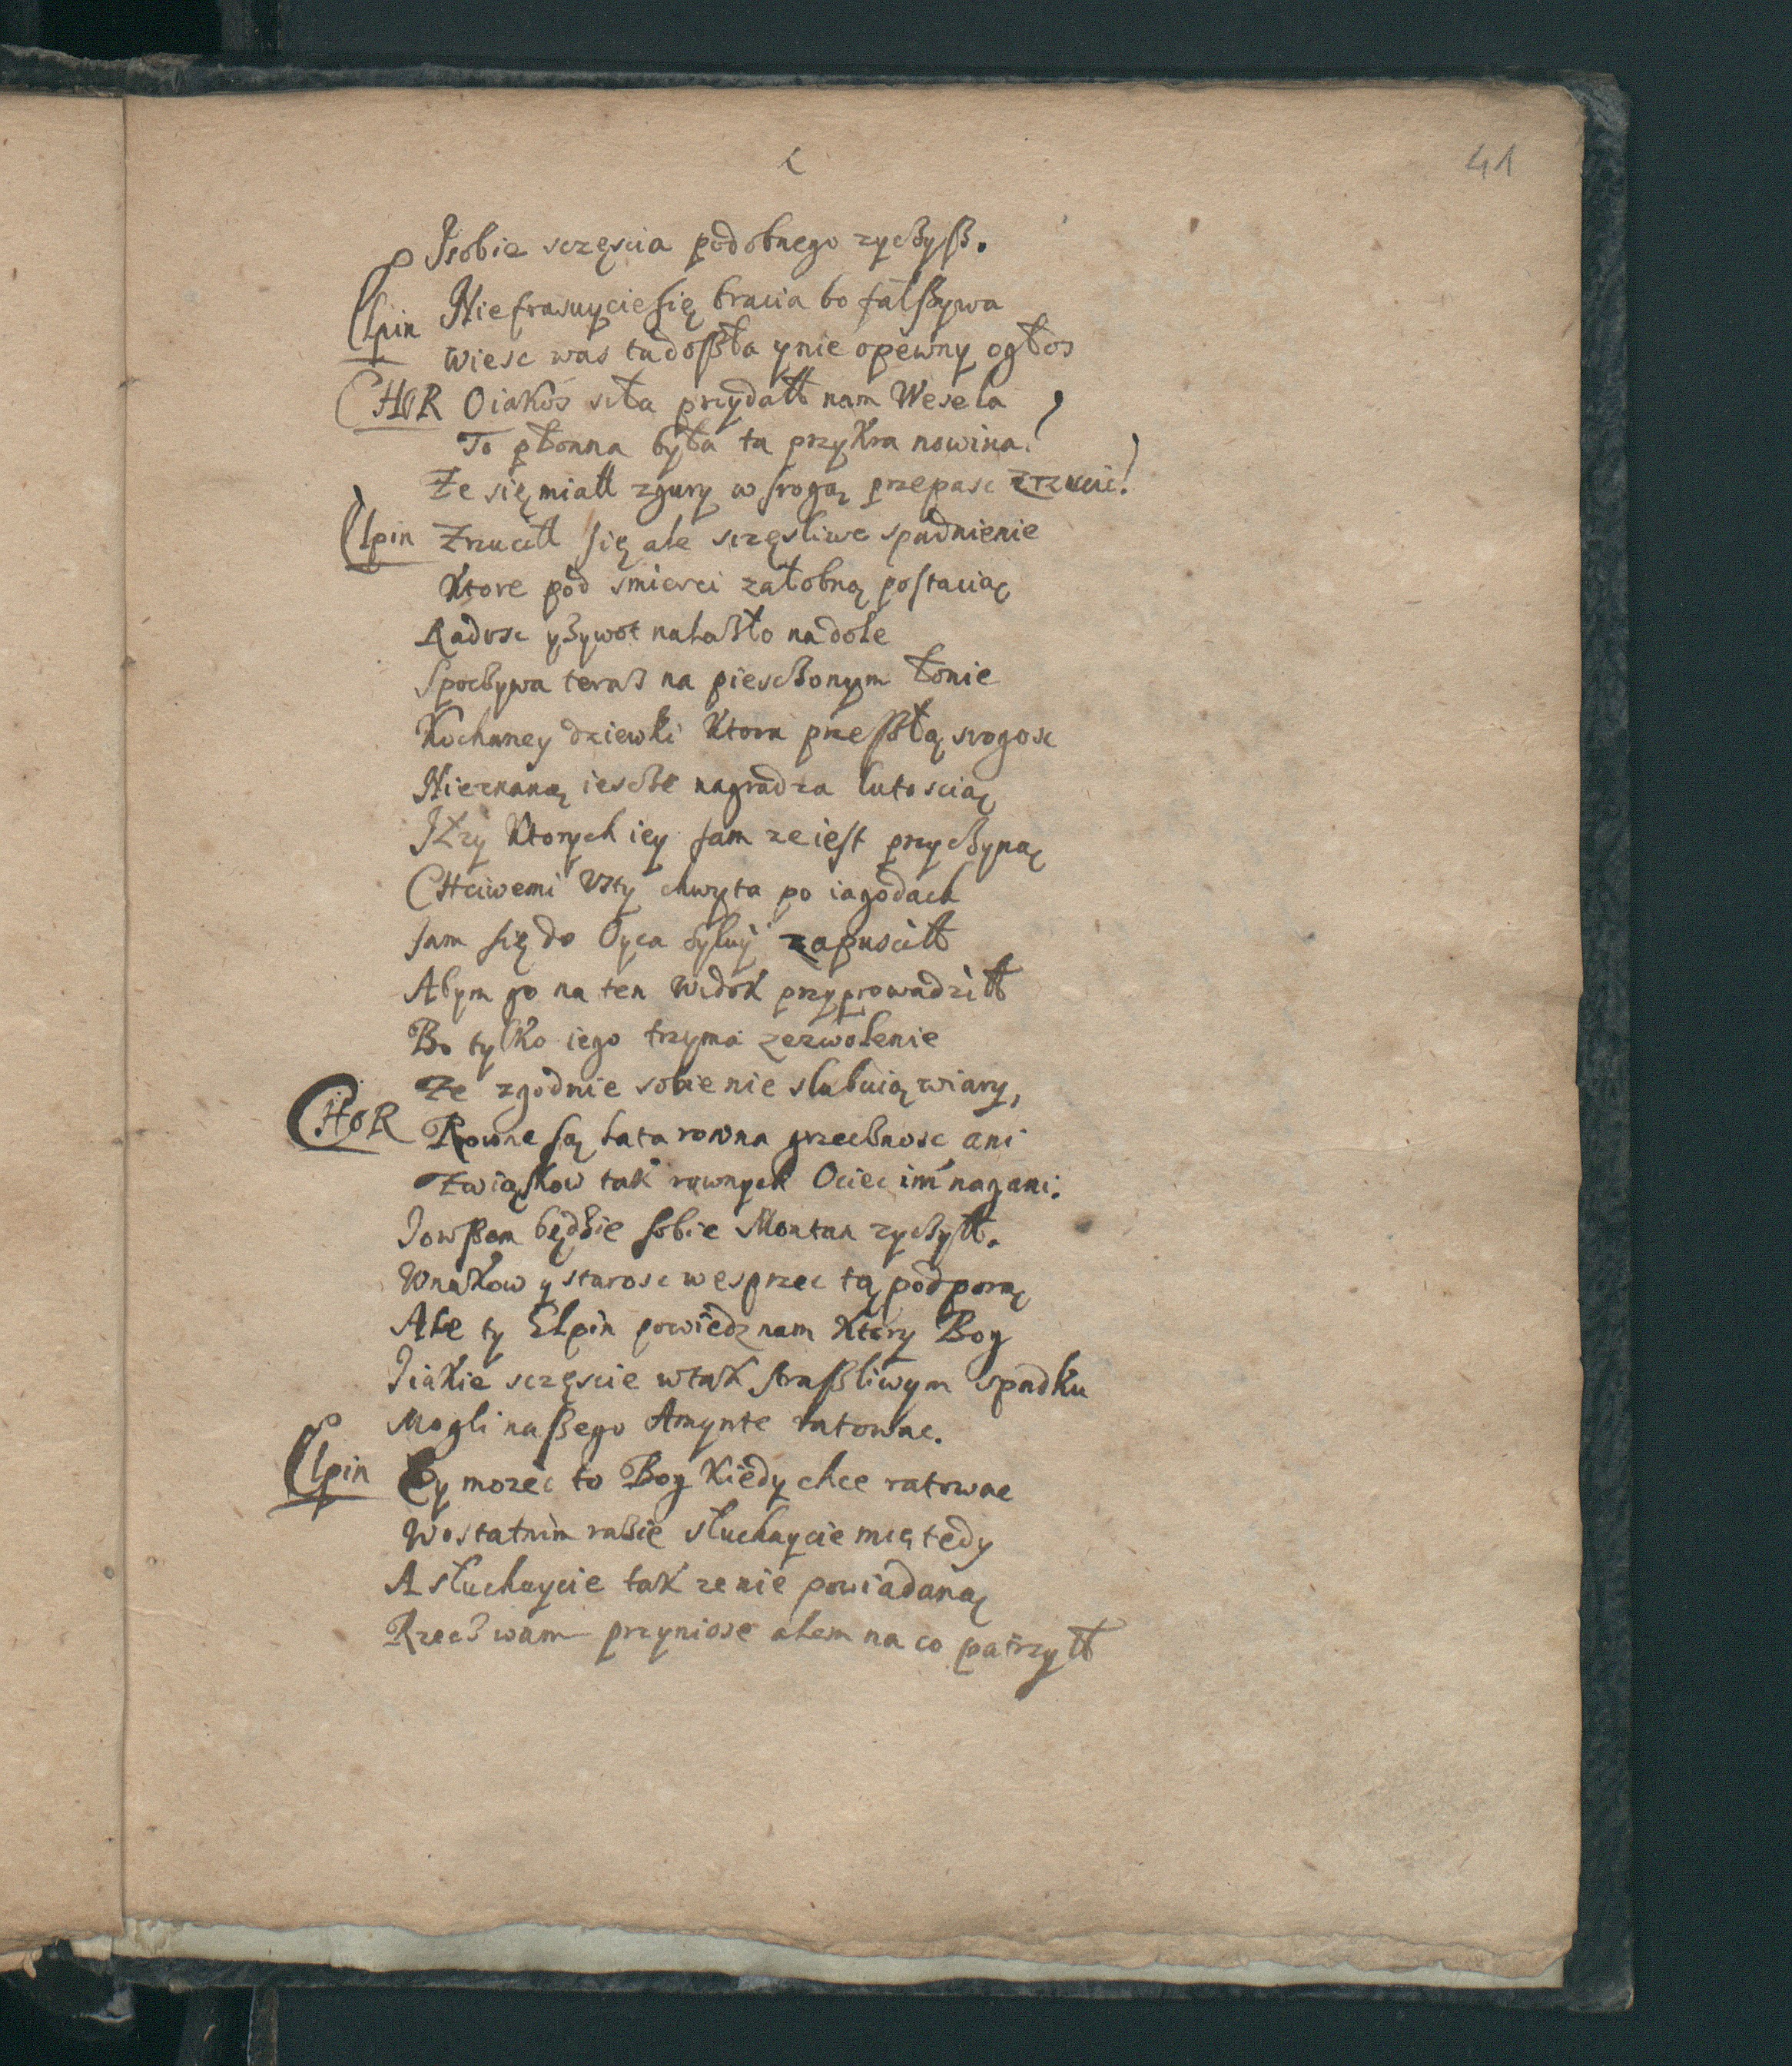 41
Jsobie sczęscia podobnego zyczyß.
Elpin Niefrasuycie się bracia bo falßywa
Wiesc was tadoßła ynie opewny ogłos
CHOR O iakoś siła przydałł nam Wesela
To płonna była ta przykra nowina!
Ze się miałł zgury w srogą przepasc zrzucic!
Elpin Zrzuciłł się ale sczęsliwe spadnienie
Ktore pod smierci załobną postacią
Radosc yzywot nalaßło nadole
Spoczywa teraz na piesczonym łonie
Kochaney dziewki Ktora przeßłą srogosc
Nieznaną iescze nagradza lutoscią
Jłzy Ktorych iey sam ze iest przyczyną
CHciwemi Vsty chwyta po iagodach
Jam się do Oyca Sylwij zapusciłł
Abym go na ten Widok przyprowadziłł
Bo tylko iego trzyma zezwolenie
Ze zgodnie sobie nie slubuią wiary,
CHOR Rowne są lata rowna grzecznosc ani
Zwiąskow tak rownych Ociec im nagani.
Jowßem będzie sobie Montan zyczyłł.
Wnukow y starosc wesprzec tą podporą
Ale ty Elpin powiedz nam Ktory Bog
Jiakie sczęscie wtak straßliwym spadku
Mogli naßego Amynte ratowac.
Elpin Ey mozec to Bog Kiedy chce ratowac
Wostatnim razie słuchaycie mię tedy
A słuchaycie tak ze nie powiadaną
Rzecz wam przyniose alem na co patrzyłł